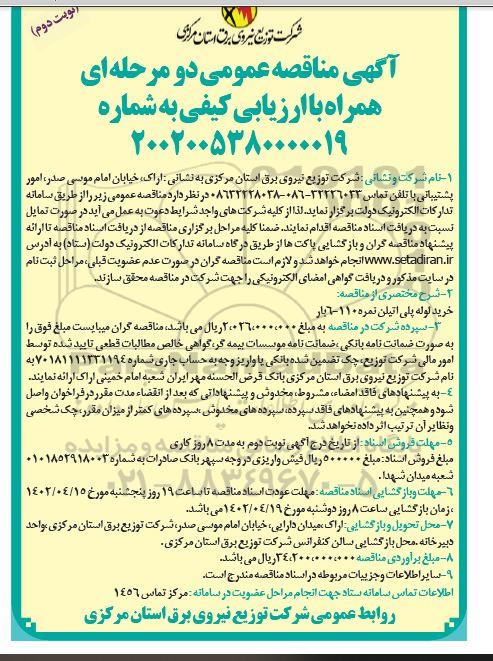 (نوبت دوم)
شرکت توزیع نیروی برق استان مرکزی
آگهی مناقصه عمومی دو مرحله ای
همراه با ارزیابی کیفی به شماره
۲۰۰۲۰۰۵۳۸۰۰۰۰۰۱۹
۱-نام شرکت و نشانی : شرکت توزیع نیروی برق استان مرکزی به نشانی : اراک، خیابان امام موسی صدر، امور
پشتیبانی با تلفن تماس ۳۲۲۲۶۰۳۳-۰۸۶ -۰۸۶۳۲۲۲۸۰۳۸ در نظر دارد مناقصه عمومی زیر را از طریق سامانه
تدارکات الکترونیک دولت برگزار نماید، لذا از کلیه شرکت های واجد شرایط دعوت به عمل می آید در صورت تمایل
نسبت به دریافت اسناد مناقصه اقدام نمایند. ضمنا کلیه مراحل برگزاری مناقصه از دریافت اسناد مناقصه تا ارائه
پیشنهاد مناقصه گران و بازگشایی پاکت ها از طریق درگاه سامانه تدارکات الکترونیک دولت (ستاد) به آدرس
www.setadiran.ir انجام خواهد شد و لازم است مناقصه گران در صورت عدم عضویت قبلی، مراحل ثبت نام
در سایت مذکور و دریافت گواهی امضای الکترونیکی را جهت شرکت در مناقصه محقق سازند.
۲-شرح مختصری از مناقصه:
خرید لوله پلی اتیلن نمره ۱۱۰-۶ بار
۳-سپرده شرکت در مناقصه به مبلغ ۲,۰۲۶,۰۰۰,۰۰۰ ریال می باشد، مناقصه گران میبایست مبلغ فوق را
به صورت ضمانت نامه بانکی ،ضمانت نامه موسسات بیمه گر، گواهی خالص مطالبات قطعی تایید شده توسط
امور مالی شرکت توزیع، چک تضمین شده بانکی یا واریز وجه به حساب جاری شماره ۷۰۱۸۱۱۱۱۳۳۱۱۹۴ به
نام شرکت توزیع نیروی برق استان مرکزی بانک قرض الحسنه مهر ایران شعبه امام خمینی اراک ارائه نمایند.
۴-به پیشنهادهای فاقد امضاء، مشروط، مخدوش و پیشنهاداتی که بعد از انقضاء مدت مقرر در فراخوان واصل
شود و همچنین به پیشنهادهای فاقد سپرده، سپرده های مخدوش ،سپرده های کمتر از میزان مقرر، چک شخصی
ونظایر آن ترتیب اثر داده نخواهد شد.
۵-مهلت فروش اسناد : از تاریخ درج آگهی نوبت دوم به مدت ۸ روز کاری
مبلغ فروش اسناد: مبلغ ۵۰۰۰۰۰ ریال فیش واریزی در وجه سپهر بانک صادرات به شماره ۰۱۰۱۸۵۲۹۱۸۰۰۳
شعبه میدان شهدا .
۶-مهلت و بازگشایی اسناد مناقصه : مهلت عودت اسناد مناقصه تا ساعت ۱۹ روز پنجشنبه مورخ ۱۴۰۲/۰۴/۱۵
،زمان بازگشایی ساعت ۸ روز دوشنبه مورخ ۱۴۰۲/۰۴/۱۹ می باشد.
۷-محل تحویل و بازگشایی: اراک، میدان دارایی، خیابان امام موسی صدر، شرکت توزیع برق استان مرکزی، واحد
دبیرخانه .محل بازگشایی سالن کنفرانس شرکت توزیع برق استان مرکزی.
۸-مبلغ برآوردی مناقصه ۳۴,۲۰۰,۰۰۰,۰۰۰ ریال می باشد.
۹-سایر اطلاعات وجزییات مربوطه در اسناد مناقصه مندرج است.
اطلاعات تماس سامانه ستاد جهت انجام مراحل عضویت در سامانه : مرکز تماس ۱۴۵۶
روابط عمومی شرکت توزیع نیروی برق استان مرکزی